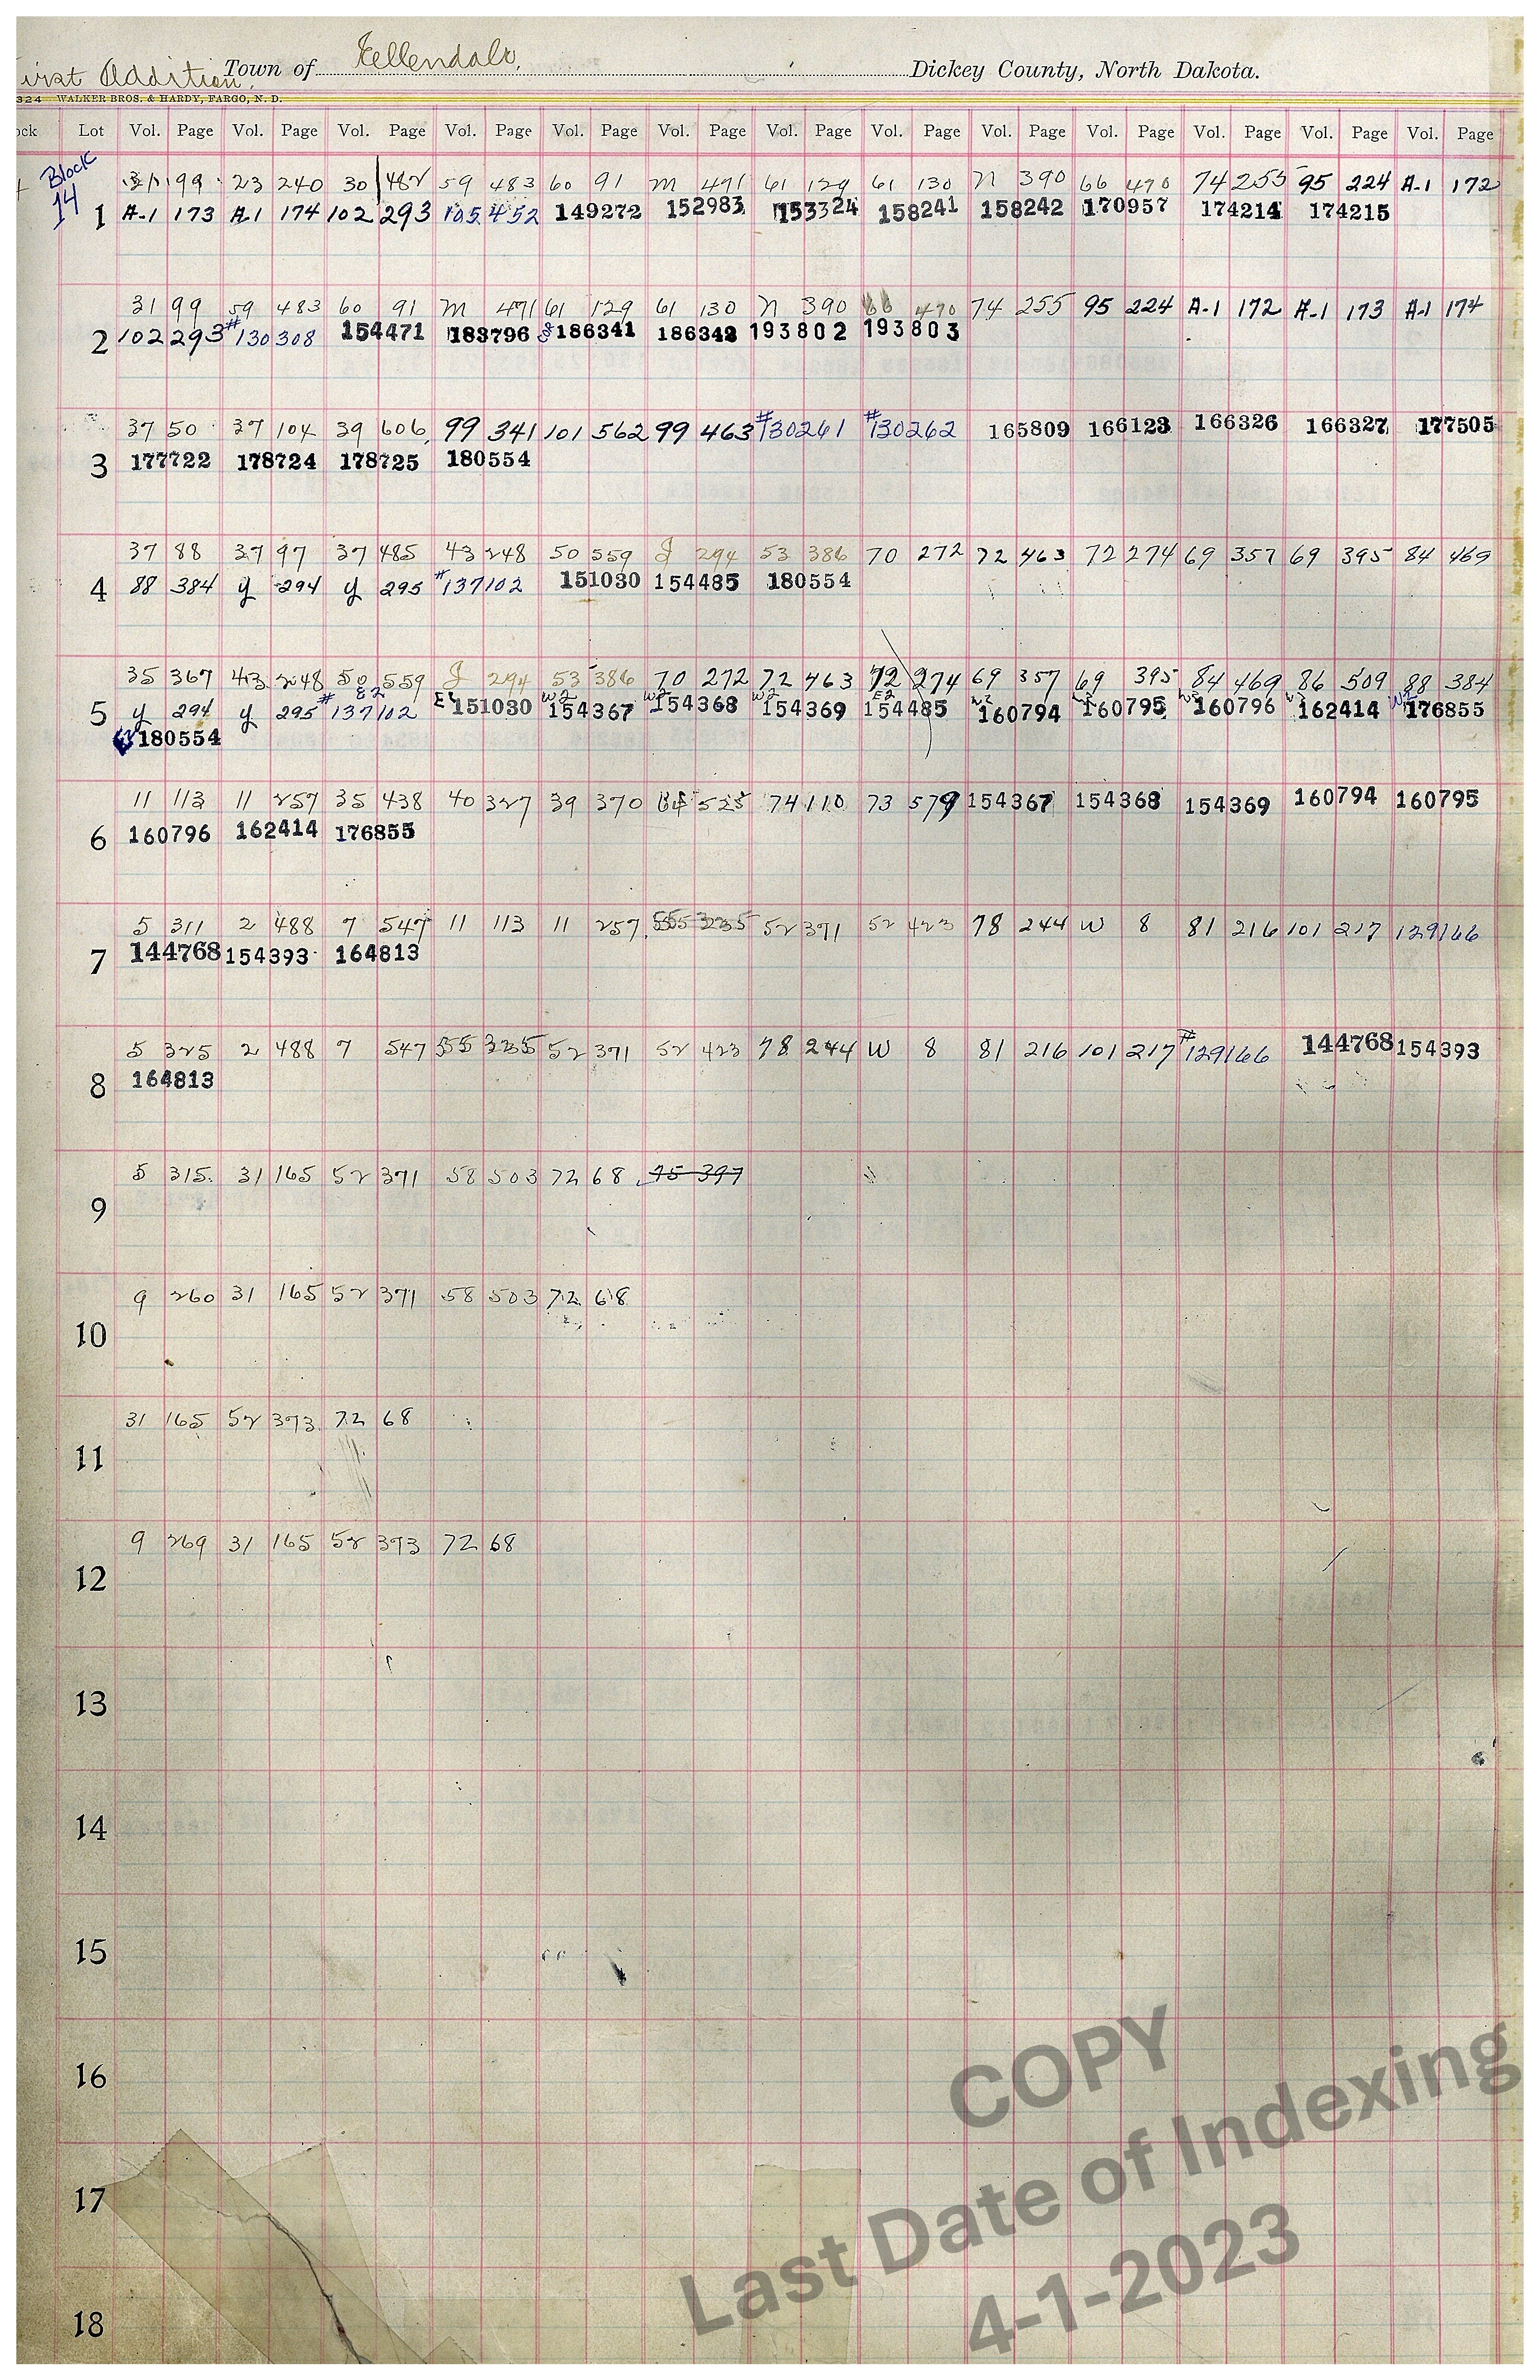 irst Addition, Town of Ellendale, Dickey County, North Dakota.
324 WALKER BROS. & HARDY, FARGO, N. D.
ock Lot Vol. Page Vol. Page Vol. Page Vol. Page Vol. Page Vol. Page Vol. Page Vol. Page Vol. Page Vol. Page Vol. Page Vol. Page Vol. Page
Block 14
31 99 23 240 30 482 59 483 60 91 M 491 61 129 61 130 N 390 66 470 74 255 95 224 A-1 172
1 A-1 173 A-1 174 102 293 105 452 149272 152983 153324 158241 158242 170957 174214 174215
31 99 59 483 60 91 M 491 61 129 61 130 N 390 66 470 74 255 95 224 A-1 172 A-1 173 A-1 174
2 102 293 #130308 154471 183796 186341 186342 193802 193803
37 50 37 104 39 606 99 341 101 562 99 463 #130261 #130262 165809 166123 166326 166327 177505
3 177722 178724 178725 180554
37 88 37 97 37 485 43 248 50 559 J 294 53 386 70 272 72 463 72 274 69 357 69 395 84 469
4 88 384 y 294 y 295 #137102 151030 154485 180554
35 367 43 248 50 559 J 294 53 386 70 272 72 463 72 274 69 357 69 395 84 469 86 509 88 384
5 y 294 y 295 # E2 137102 E2 151030 W2 154367 W2 154368 W2 154369 E2 154485 W2 160794 W2 160795 W2 160796 W2 162414 W2 176855
180554
11 113 11 257 35 438 40 327 39 370 525 74 110 73 579 154367 154368 154369 160794 160795
6 160796 162414 176855
5 311 2 488 7 547 11 113 11 257 55 335 52 371 52 423 78 244 W 8 81 216 101 217 129166
7 144768 154393 164813
5 325 2 488 7 547 55 335 52 371 52 423 78 244 W 8 81 216 101 217 #129166 144768 154393
8 164813
5 315 31 165 52 371 58 503 72 68 75 397
9
9 260 31 165 52 371 58 503 72 68
10
31 165 52 373 72 68
11
9 269 31 165 52 373 72 68
12
13
14
15
16
17
18
COPY
Last Date of Indexing
4-1-2023